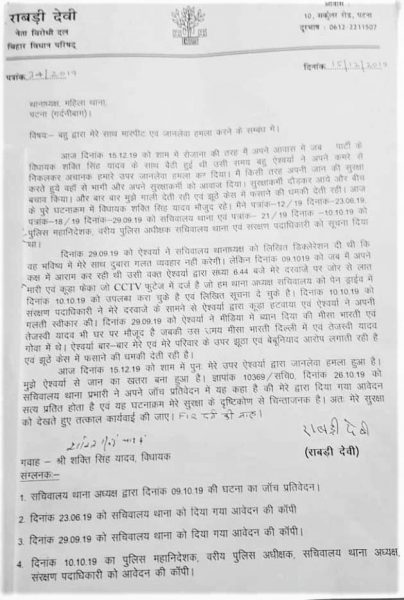 राबड़ी देवी
नेता विरोधी दल
बिहार विधान परिषद्
आवास
10, सर्कुलर रोड, पटना
दूरभाष : 0612-2211507
पत्रांक 24/2019
दिनांक 15/12/2019
थानाध्यक्ष, महिला थाना,
पटना (गर्दनीबाग)।
विषय- बहु द्वारा मेरे साथ मारपीट एवं जानलेवा हमला करने के सम्बध में।
आज दिनांक 15.12.19 को शाम में रोजाना की तरह मैं अपने आवास में जब पार्टी के
विधायक शक्ति सिंह यादव के साथ बैठी हुई थी उसी समय बहु ऐश्वर्या ने अपने कमरे से
निकलकर अचानक हमारे उपर जानलेवा हमला कर दिया। मैं किसी तरह अपनी जान की सुरक्षा
करते हुये वहाँ से भागी और अपने सुरक्षाकर्मी को आवाज दिया। सुरक्षाकर्मी दौड़कर आये और बीच
बचाव किया। और बार बार मुझे गाली देती रही और झूठे केस में फसाने की धमकी देती रही। आज
के पुरे घटनाक्रम में विधायक शक्ति सिंह यादव मौजूद रहे। मेंने पत्रांक-12/19 दिनांक-23.06.19,
पत्रांक-18/19 दिनांक-29.09.19 को सचिवालय थाना एवं पत्रांक- 21/19 दिनांक -10.10.19 को
पुलिस महानिदेशक, वरीय पुलिस अधीक्षक सचिवालय थाना एवं संरक्षण पदाधिकारी को सूचना दिया
था।
दिनांक 29.09.19 को ऐश्वर्या ने सचिवालय थानाध्यक्ष को लिखित डिक्लेरेशन दी थी कि
वह भविष्य में मेरे साथ दुबारा गलत व्यवहार नहीं करेगी। लेकिन दिनांक 09.10.19 को जब में अपने
कक्ष में आराम कर रही थी उसी वक्त ऐश्वर्या द्वारा संध्या 6.44 बजे मेरे दरवाजे पर जोर से लात
मारी एवं कूड़ा फेका जो CCTV फुटेज में दर्ज है जो हम थाना अध्यक्ष सचिवालय को पेन ड्राईव में
दिनांक 10.10.19 को उपलब्ध करा चुके है एवं लिखित सूचना दे चुके है। दिनांक 10.10.19 को
संरक्षण पदाधिकारी ने मेरे दरवाजे के सामने से ऐश्वर्या द्वारा कूड़ा हटवाया एवं ऐश्वर्या ने अपनी
गलती स्वीकार की। दिनांक 29.09.19 को ऐश्वर्या ने मीडिया में ब्यान दिया की मीसा भारती एवं
तेजस्वी यादव भी घर पर मौजूद है जबकी उस समय मीसा भारती दिल्ली में एवं तेजस्वी यादव
गोवा में थे। ऐश्वर्या बार-बार मेरे एवं मेरे परिवार के उपर झूठा एवं बेबूनियाद आरोप लगाती रही है
एवं झूठे केस में फसाने की धमकी देती रही है।
आज दिनांक 15.12.19 को शाम में पुनः मेरे उपर ऐश्वर्या द्वारा जानलेवा हमला हुआ है।
मुझे ऐश्वर्या से जान का खतरा बना हुआ है। ज्ञापांक 10369/सचि0, दिनांक 26.10.19 को
सचिवालय थाना प्रभारी ने अपने जाँच प्रतिवेदन में यह कहा है की मेरे द्वारा दिया गया आवेदन
सत्य प्रतित होता है एवं यह घटनाक्रम मेरे सुरक्षा के दृष्टिकोण से चिन्ताजनक है। अतः मेरे सुरक्षा
को देखते हुए तत्काल कार्यवाई की जाए। FIR
राबड़ी देवी
(राबड़ी देवी)
गवाह – श्री शक्ति सिंह यादव, विधायक
संग्लनकः-
1. सचिवालय थाना अध्यक्ष द्वारा दिनांक 09.10.19 की घटना का जाँच प्रतिवेदन।
2. दिनांक 23.06.19 को सचिवालय थाना को दिया गया आवेदन की कॉपी
3. दिनांक 29.09.19 को सचिवालय थाना को दिया गया आवेदन की कॉपी।
4. दिनांक 10.10.19 का पुलिस महानिदेशक, वरीय पुलिस अधीक्षक, सचिवालय थाना अध्यक्ष,
संरक्षण पदाधिकारी को आवेदन की कॉपी।